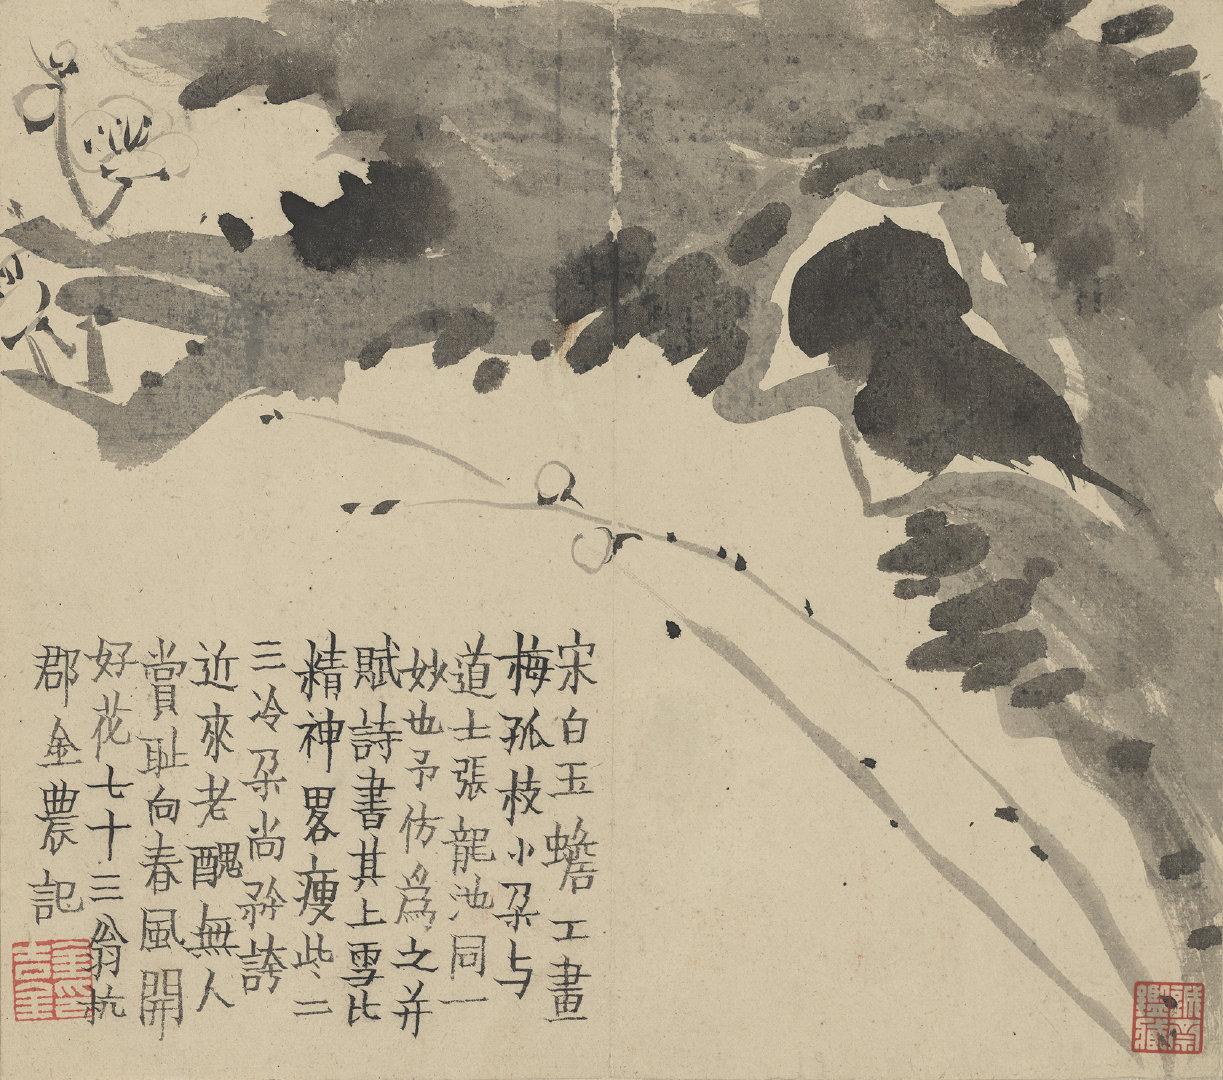 宋白玉蟾工畫
梅孤枝小朶与
道士張龍池同一
妙也予仿爲之并
賦詩書其上雪比
精神畧瘦些二
三冷朶尚矜誇
近來老醜無人
賞耻向春風開
好花七十三翁杭
郡金農記